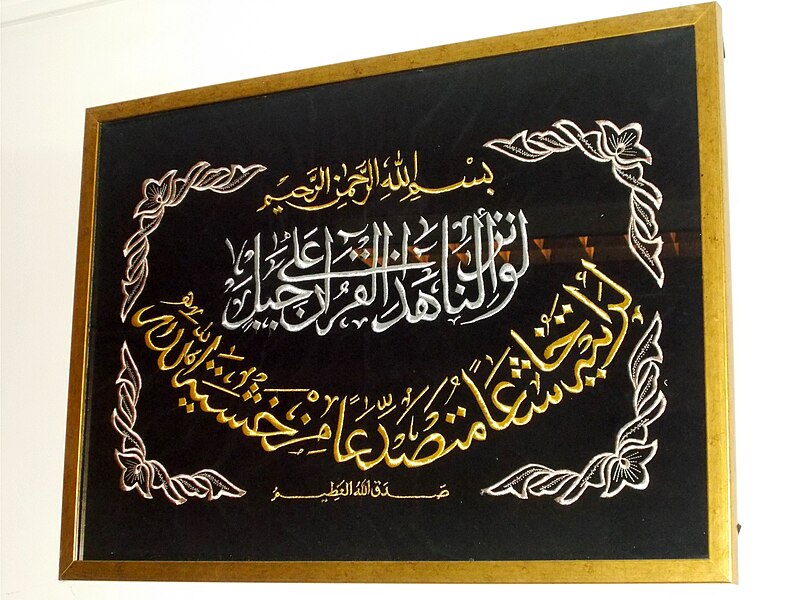 بِسْمِ اللهِ الرَّحْمٰنِ الرَّحِيمِ
لو انزلنا هذا القرآن على جبل
لرأيته خاشعاً متصدِّعاً من خشية الله
صدق الله العظيم